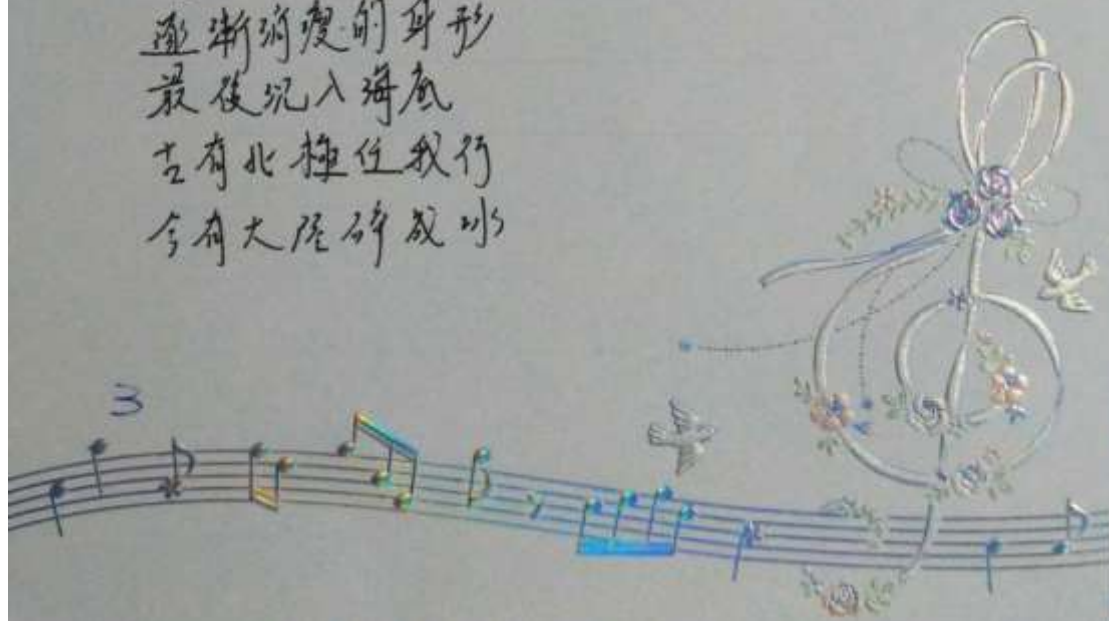 逐漸消瘦的身形
最後沉入海底
古有北極任我行
今有大陸碎成冰
3